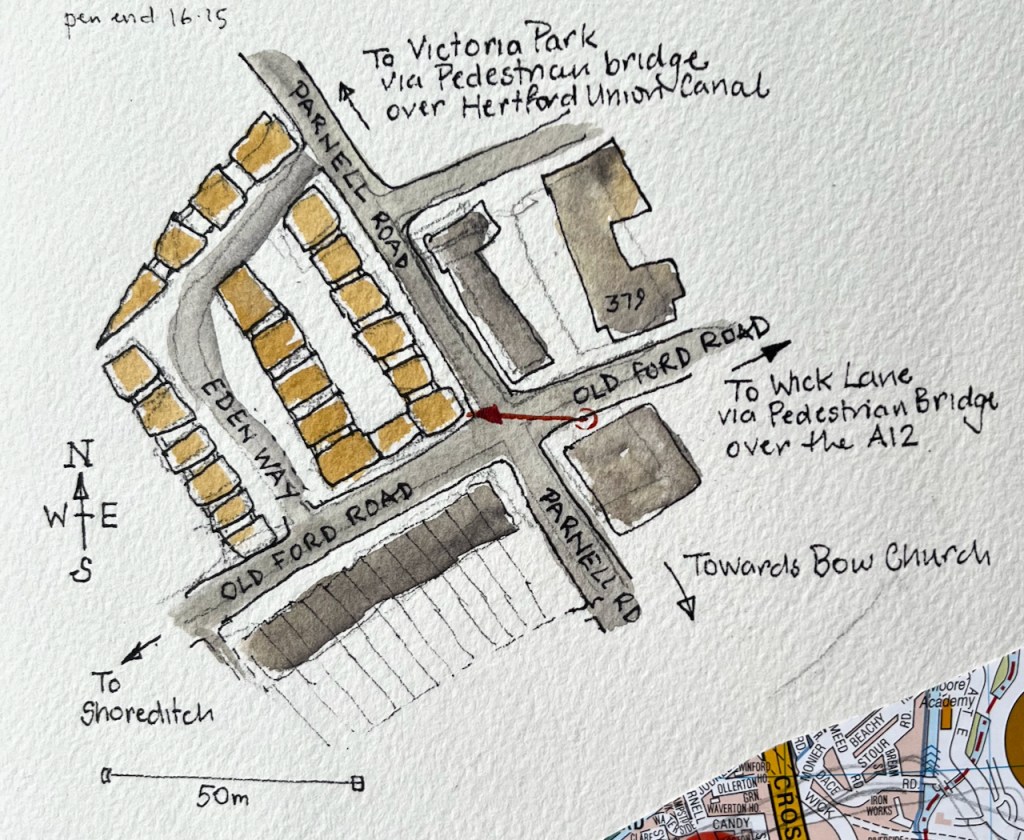 pen end 16.15
To Victoria Park
via Pedestrian bridge
over Hertford Union Canal
PARNELL ROAD
379
OLD FORD ROAD
To Wick Lane
via Pedestrian Bridge
over the A12
EDEN WAY
N
W E
S
OLD FORD ROAD
PARNELL RD
Towards Bow Church
To
Shoreditch
50m
Moore
Academy
MEED
BEACHY
RD
MONIER
RD
STOUR
DACE
RD
WICK
IRON
WORKS
WINFORD
HO
OLLERTON
GRN
WAVERTON HO
CANDY
CROS